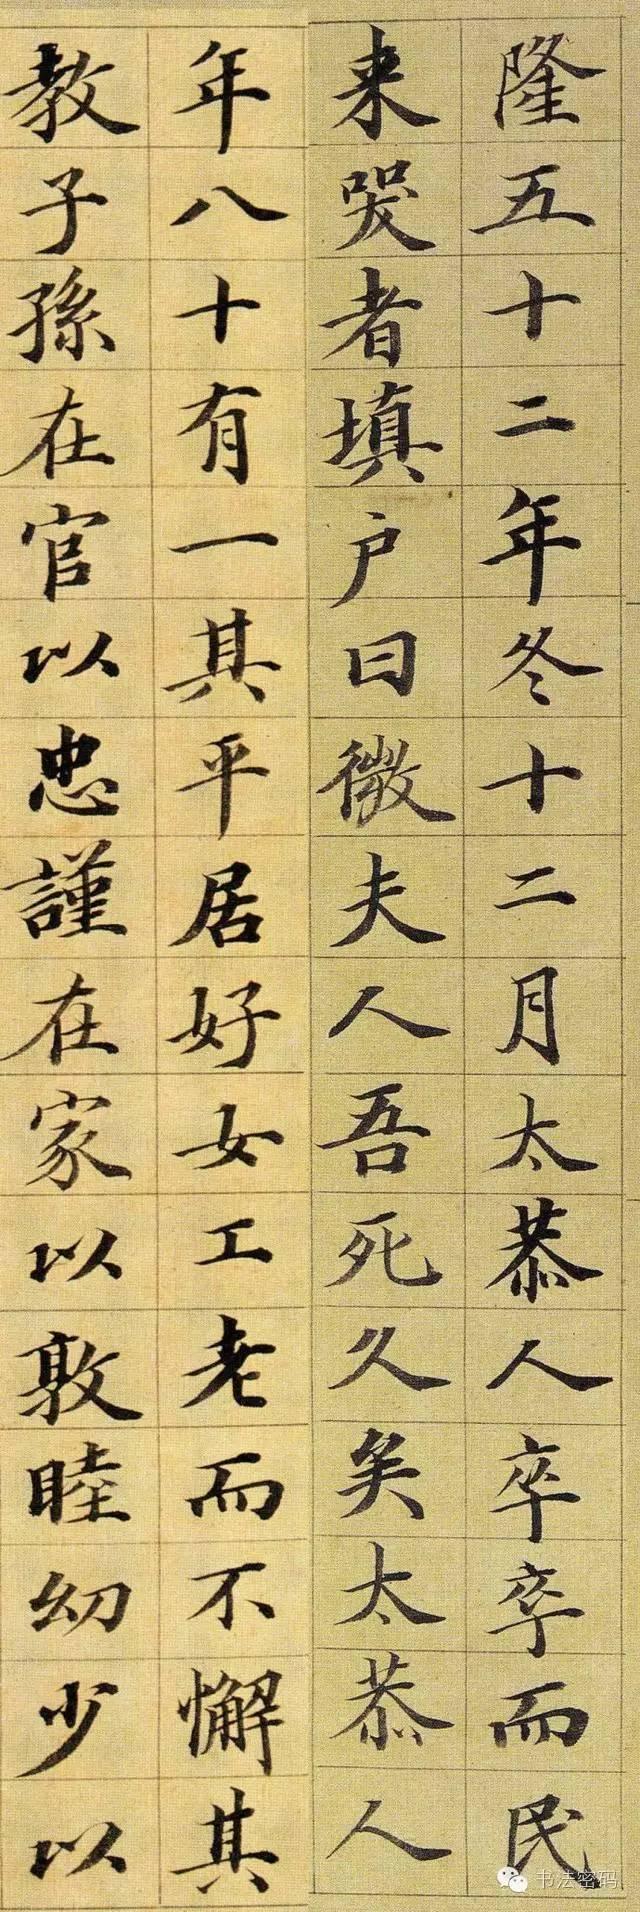 隆五十二年冬十二月太恭人卒卒而民
来哭者填户曰微夫人吾死久矣太恭人
年八十有一其平居好女工老而不懈其
教子孫在官以忠謹在家以敦睦幼少以
书法密码